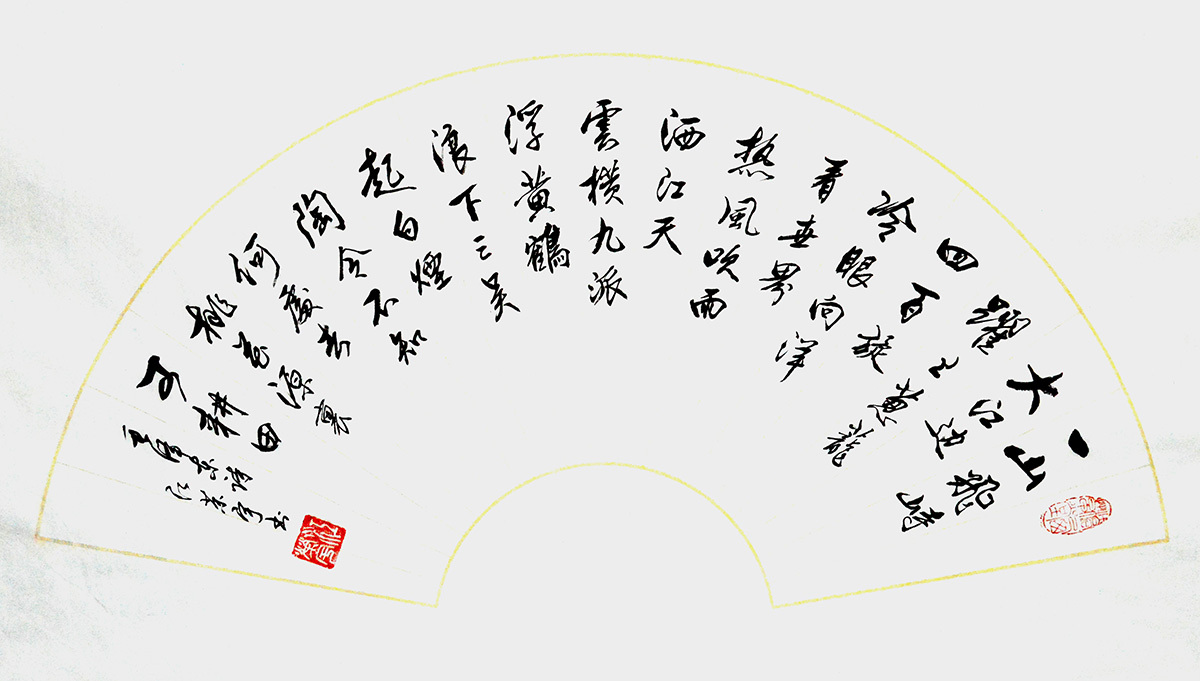 一山飛峙
大江边
躍上葱蘢
四百旋
冷眼向洋
看世界
熱風吹雨
洒江天
雲横九派
浮黄鶴
浪下三吴
起白煙
陶令不知
何處去
桃花源裏
可耕田